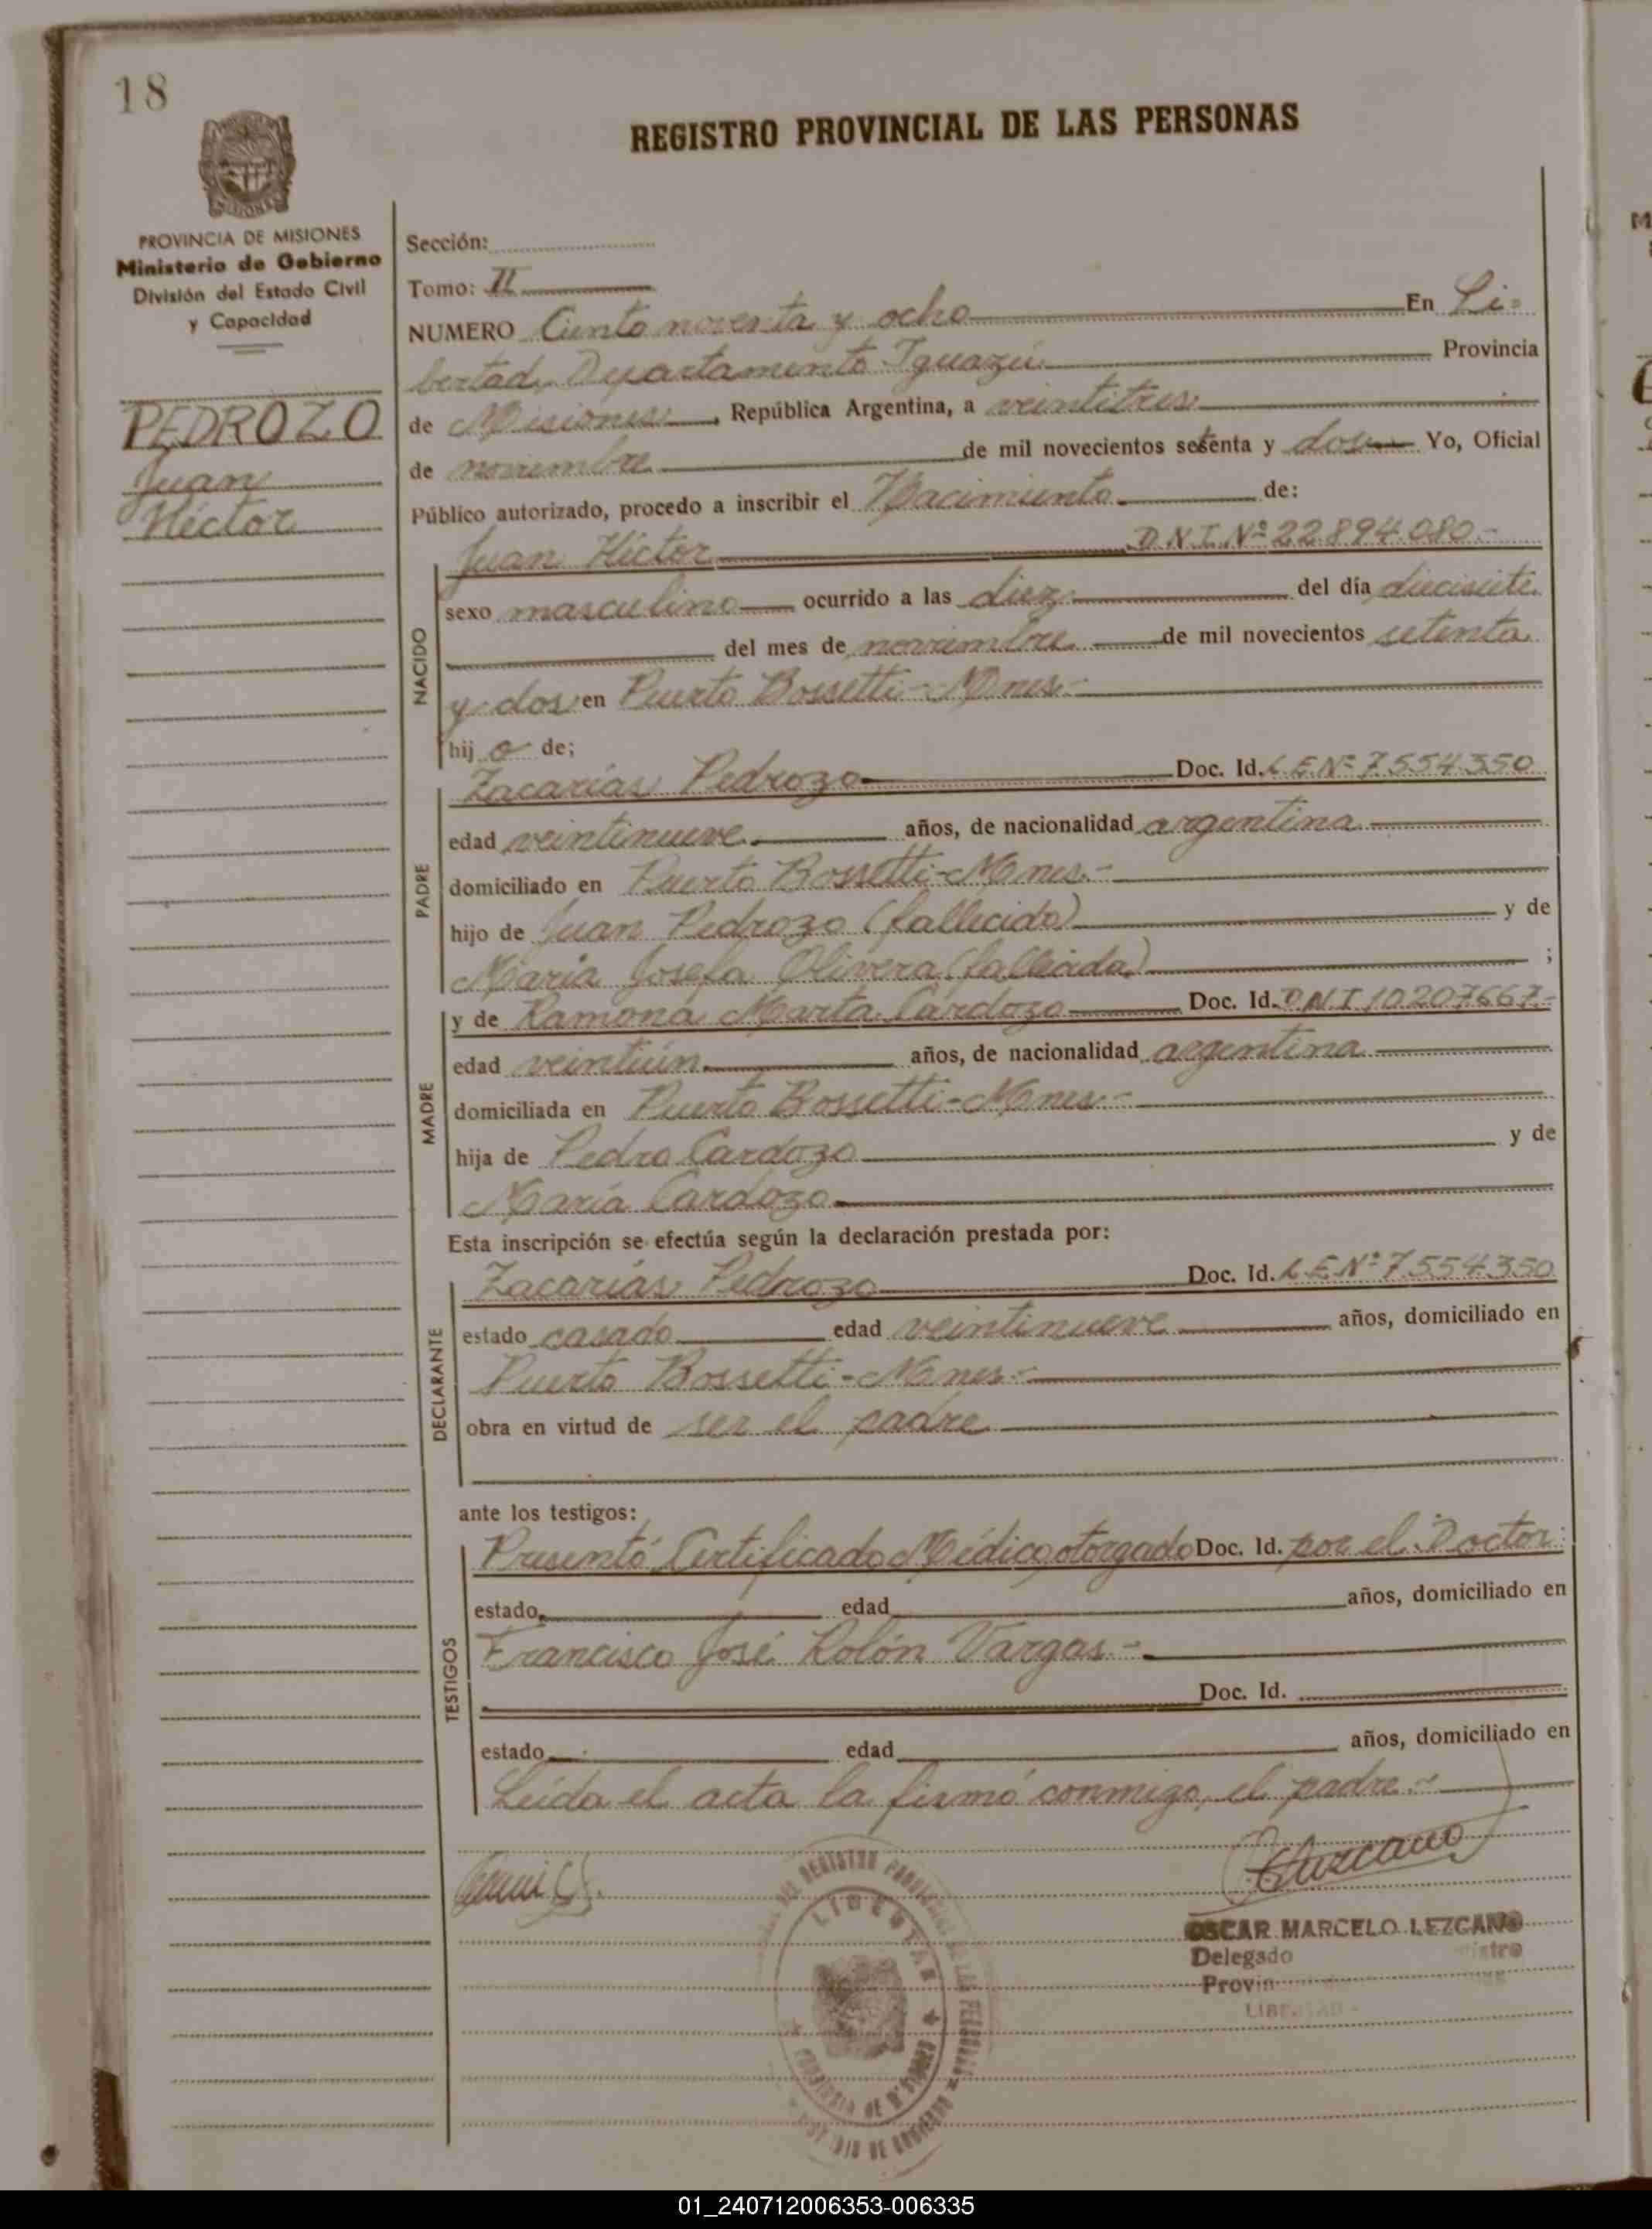 18
REGISTRO PROVINCIAL DE LAS PERSONAS
MISIONES
PROVINCIA DE MISIONES
Ministerio de Gobierno
División del Estado Civil
y Capacidad
PEDROZO
Juan
Héctor
Sección:
Tomo: II
NUMERO Ciento noventa y ocho En Li=
bertad, Departamento Iguazú Provincia
de Misiones, República Argentina, a veintitres
de noviembre de mil novecientos setenta y dos Yo, Oficial
Público autorizado, procedo a inscribir el Nacimiento de:
Juan Héctor D.N.I. Nº 22.894.080.-
NACIDO
sexo masculino ocurrido a las diez del día diecisiete
del mes de noviembre de mil novecientos setenta
y dos en Puerto Bossetti-Mnes.-
hijo de;
PADRE
Zacarías Pedrozo Doc. Id. L.E.Nº 7.554.350
edad veintinueve años, de nacionalidad argentina
domiciliado en Puerto Bossetti-Mnes.-
hijo de Juan Pedrozo (fallecido) y de
María Josefa Olivera (fallecida) ;
MADRE
y de Ramona Marta Cardozo Doc. Id. D.N.I 10.207.667.-
edad veintiún años, de nacionalidad argentina
domiciliada en Puerto Bossetti-Mnes.-
hija de Pedro Cardozo y de
María Cardozo
Esta inscripción se efectúa según la declaración prestada por:
DECLARANTE
Zacarías Pedrozo Doc. Id. L.E.Nº 7.554.350
estado casado edad veintinueve años, domiciliado en
Puerto Bossetti-Mnes.-
obra en virtud de ser el padre
ante los testigos:
TESTIGOS
Presentó Certificado Médico otorgado Doc. Id. por el Doctor:
estado edad años, domiciliado en
Francisco José Rolón Vargas.-
Doc. Id.
estado edad años, domiciliado en
Leída el acta la firmó conmigo, el padre.-
REGISTRO PROVINCIAL DE LAS PERSONAS
LIBERTAD
PROVINCIA DE MISIONES
OSCAR MARCELO LEZCANO
Delegado
Provin
LIBERTAD
01_240712006353-006335